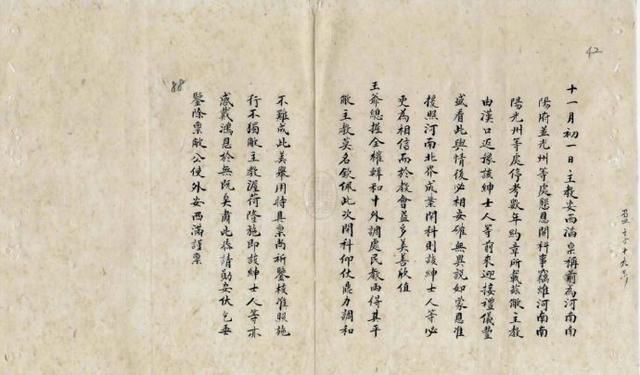 42
十一月初一日主教安西滿稟稱前為河南南
陽府並光州等處懇恩開科事竊維河南南
陽光州等處停考數年約章所載茲敝主教
由漢口近穄該紳士人等前來迎接禮儀豐
盛看此輿情後必相安確無異說如蒙恩准
援照河南北界成業開科則該紳士人等必
更為相信而於教會益多美善欣值
王爺總握全權輯和中外調處民教兩得其平
敝主教莫名欽佩此次開科仰仗鼎力調和
不難成此美舉用特具稟尚祈鑒核准照施
行不獨敝主教渥荷隆施即該紳士人等亦
感戴鴻恩於無旣矣肅此恭請勛安伏乞垂
鑒除稟敝公使外安西滿謹稟
88